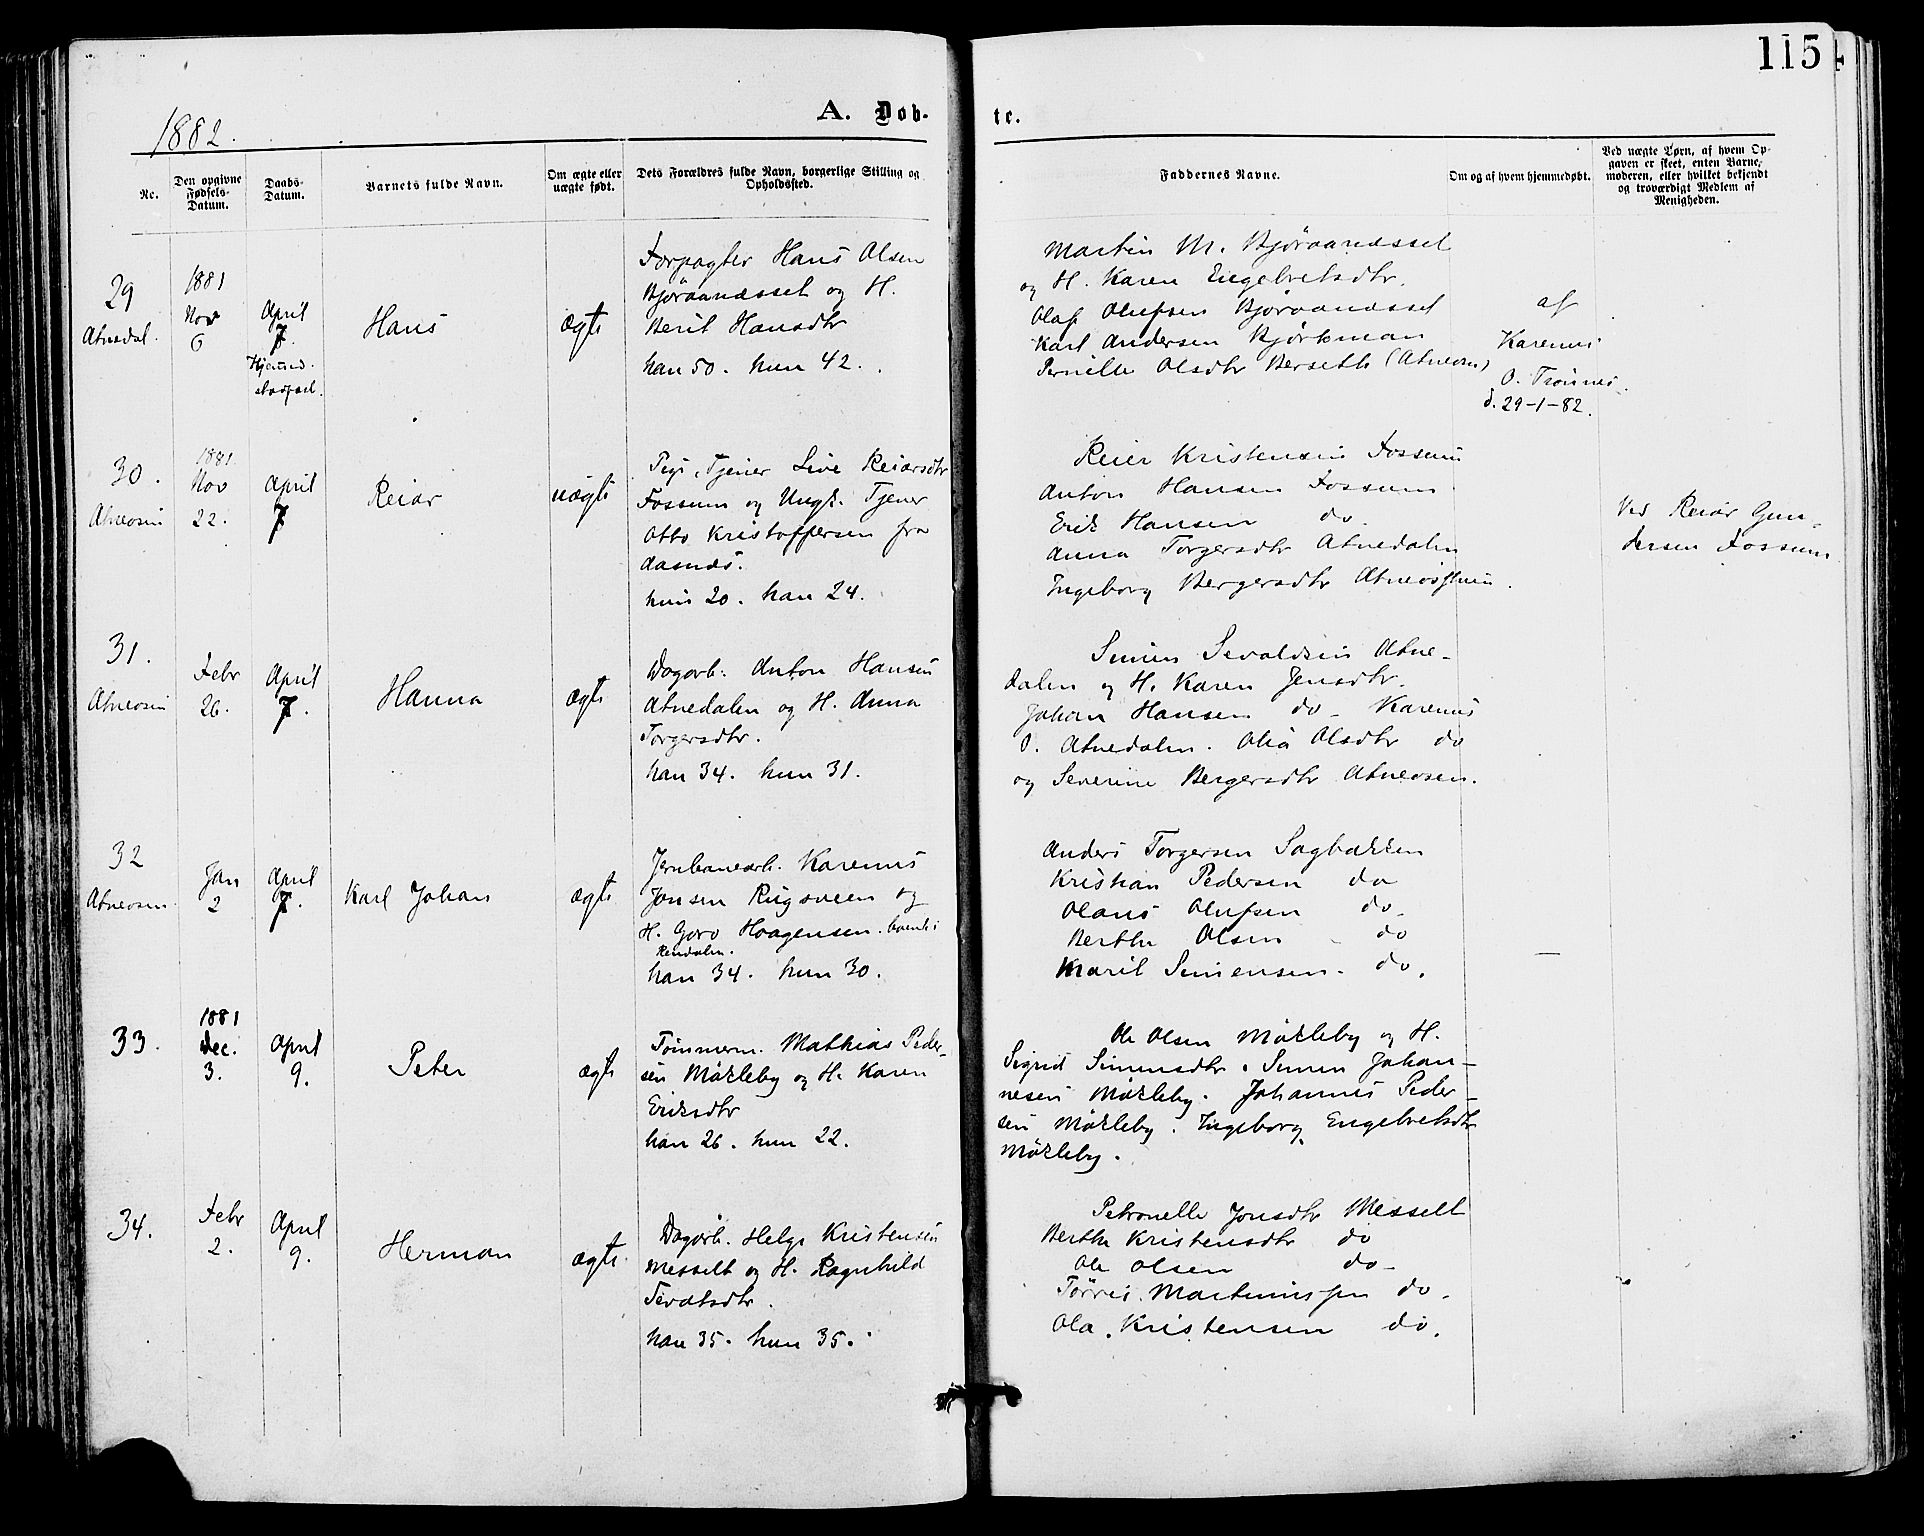 115
1882.
A. Døb-
te.
No.
Den opgivne Fødsels-Datum.
Daabs-Datum.
Barnets fulde Navn.
Om ægte eller uægte født.
Dets Forældres fulde Navn, borgerlige Stilling og Opholdssted.
Faddernes Navne.
Om og af hvem hjemmedøbt.
Ved uægte Børn, af hvem Opgaven er skeet, enten Barnemoderen, eller hvilket bekjendt og troværdigt Medlem af Menigheden.
29
Atnedal.
1881
Nov
6
April
7.
Hjemmed.
stadfæst.
Hans
ægte
Forpagter Hans Olsen
Bjøraanæsset og H.
Berit Hansdtr
han 50. hun 42.
Martin M. Bjøraanæsset
og H. Karen Engebretsdtr.
Olaf Olufsen Bjøraanæsset
Karl Andersen Bjørkman
Pernille Olsdtr Berseth (Atneosen)
af
Karenus
O. Trønnes
d. 29-1-82.
30.
Atneosen
1881.
Nov
22.
April
7
Reiar
uægte
Pige, Tjener Live Reiarsdtr
Fossum og Ungk. Tjener
Otto Kristoffersen fra
Aasnæs.
hun 20. han 24.
Reier Kristensen Fossum
Anton Hansen Fossum
Erik Hansen do.
Anna Torgersdtr Atnedalen
Ingeborg Bergersdtr Atneosen.
Ved Reiar Gun-
dersen Fossum
31.
Atneosen
Febr
26.
April
7.
Hanna
ægte
Dagarb. Anton Hansen
Atnedalen og H. Anna
Torgersdtr.
han 34. hun 31.
Simen Sevaldsen Atne-
dalen og H. Karen Jensdtr.
Johan Hansen do- Karenus
O. Atnedalen. Olia Olsdtr do
og Severine Bergersdtr Atneosen.
32
Atneosen
Jan
2
April
7.
Karl Johan
ægte
Jernbanearb. Karenus
Jonsen Rugsveen og
H. Goro Haagensen. boende i
Rendalen.
han 34. hun 30.
Anders Torgersen Sagbakken
Kristian Pedersen do
Olaus Olufsen do.
Berthe Olsen - do
Marit Simensen - do.
—
33.
1881
Dec.
3.
April
9.
Peter
ægte
Tømmerm. Mathias Peder-
sen Møkleby og H. Karen
Eriksdtr
han 26. hun 22.
Ole Olsen Møkleby og H.
Sigrid Simensdtr. Simen Johan-
nesen Møkleby. Johannes Peder-
sen Møkleby. Ingeborg Engebretsdtr
Møkleby.
34.
Febr
2.
April
9.
Herman
ægte
Dagarb. Helge Kristensen
Messelt og H. Ragnhild
Sevatsdtr.
han 35. hun 35.
Petronelle Jonsdtr Messelt
Berthe Kristensdtr do
Ole Olsen do-
Tørris Martinussen do.
Ola. Kristensen do.